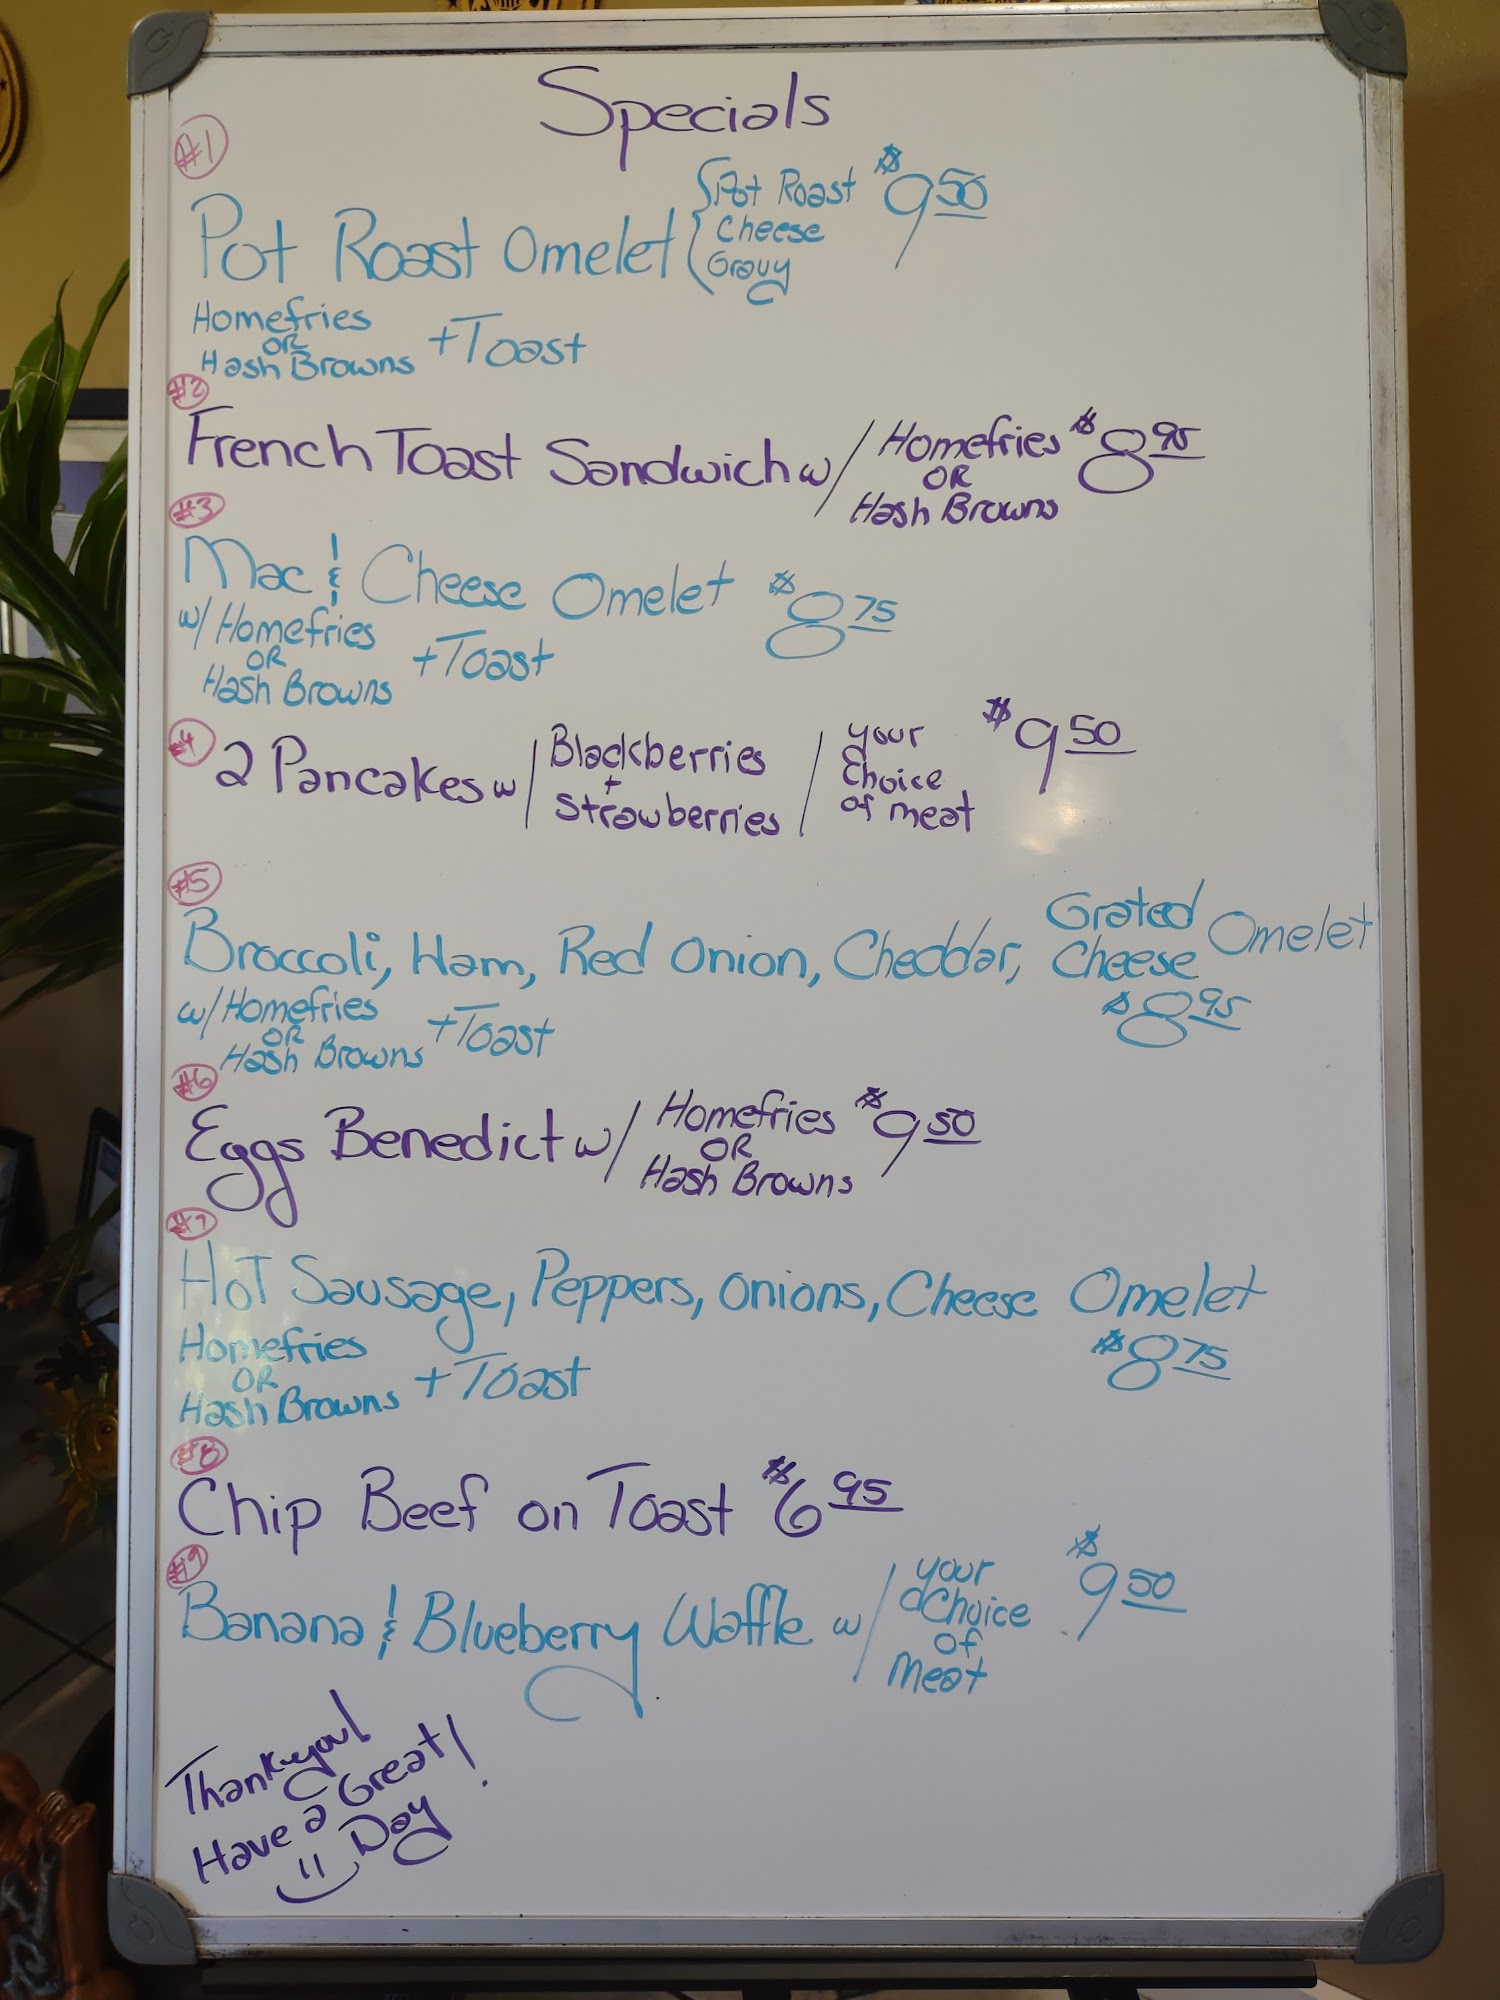 Specials
#1
Pot Roast Omelet { Pot Roast $9.50
Cheese
Gravy
Homefries
OR
Hash Browns + Toast
#2
French Toast Sandwich w/ Homefries $8.95
OR
Hash Browns
#3
Mac & Cheese Omelet $8.75
w/ Homefries
OR
Hash Browns + Toast
#4
2 Pancakes w/ Blackberries + Strawberries / your Choice of meat $9.50
#5
Broccoli, Ham, Red Onion, Cheddar, Grated Cheese Omelet
$8.95
w/ Homefries
OR
Hash Browns + Toast
#6
Eggs Benedict w/ Homefries $9.50
OR
Hash Browns
#7
Hot Sausage, Peppers, Onions, Cheese Omelet
$8.75
Homefries
OR
Hash Browns + Toast
#8
Chip Beef on Toast $6.95
#9
Banana & Blueberry Waffle w/ your Choice of Meat $9.50
Thank you!
Have a Great!
Day